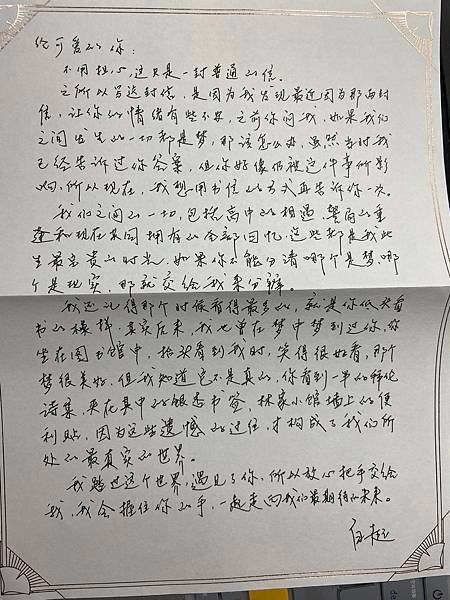 给可爱的你：
不用担心，这只是一封普通的信。
之所以写这封信，是因为我发现最近因为那两封
信，让你的情绪有些不安，之前你问我，如果我们
之间发生的一切都是梦，那该怎么办，虽然当时我
已经告诉过你答案，但你好像仍被这件事所影
响，所以现在，我想用书信的方式再告诉你一次。
我们之间的一切，包括高中的相遇，鹭岛的重
逢和现在共同拥有的全部回忆，这些都是我此
生最宝贵的时光，如果你不能分清哪个是梦，哪
个是现实，那就交给我来分辨。
我还记得那个时候看得最多的，就是你低头看
书的模样，其实后来，我也曾在梦中梦到过你，你
坐在图书馆中，抬头看到我时，笑得很好看，那个
梦很美好，但我知道它不是真的，你看到一半的
诗集，夹在其中的银杏书签，林家小馆墙上的便
利贴，因为这些遗憾的过往，才构成了我们所
处的最真实的世界。
我踏过这个世界，遇见了你，所以放心把手交给
我，我会握住你的手，一起走向我们最期待的未来。
白起